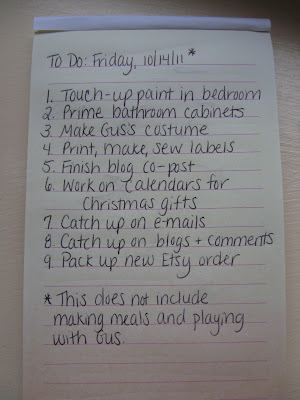 To Do: Friday, 10/14/11*
1. Touch-up paint in bedroom
2. Prime bathroom cabinets
3. Make Gus's costume
4. Print, make, sew labels
5. Finish blog co-post
6. Work on Calendars for
Christmas gifts
7. Catch up on e-mails
8. Catch up on blogs + comments
9. Pack up new Etsy order
* This does not include
making meals and playing
with Gus.